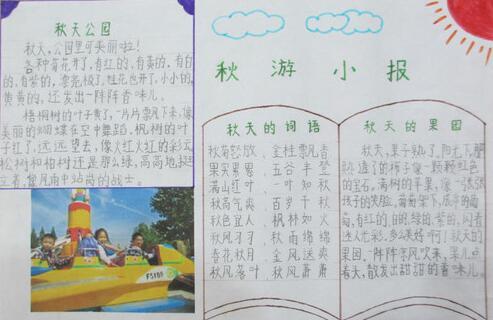 秋天公园
秋天,公园里可美丽啦!
各种菊花开了,有红的,有黄的,有白
的,有紫的,漂亮极了。桂花也开了,小小的,
黄黄的,还发出一阵阵香味儿。
梧桐树的叶子黄了,一片片飘下来,像
美丽的蝴蝶在空中舞蹈。枫树的叶
子红了,远远望去,像火红火红的彩云。
松树和柏树还是那么绿,高高地挺
立着,像风雨中站岗的战士。
F5189
秋游小报
秋天的词语
秋菊怒放、金桂飘香
果实累累、五谷丰登
满山红叶、一叶知秋
秋高气爽、百岁千秋
秋色宜人、枫林如火
秋风习习、秋雨绵绵
春花秋月、金风送爽
秋风落叶、秋风萧萧
秋天的果园
秋天,果子熟了,阳光下,那
熟透了的柿子像一颗颗红色
的宝石。满树的苹果,像一张张
孩子的笑脸。葡萄架下,成串的葡
萄,有红的,白的,绿的,紫的,闪着
迷人光彩,多么美妙啊!了秋天的
果园,阵阵凉风吹来,果儿点
春天,散发出甜甜的香味儿。